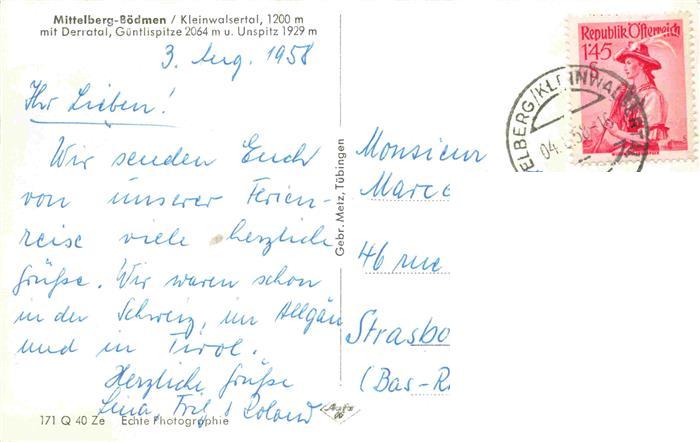 Mittelberg-Bödmen / Kleinwalsertal, 1200 m
mit Derratal, Güntlispitze 2064 m u. Unspitz 1929 m
3. Aug. 1958
Ihr Lieben!
Wir senden Euch
von unserer Ferien-
reise viele herzliche
Grüße. Wir waren schon
in der Schweiz, im Allgäu
und in Tirol.
Herzliche Grüße
Lina, Roland
171 Q 40 Ze Echte Photographie
Gebr. Metz, Tübingen
Republik Österreich
1'45
S
ELBERG/KLEINWALSERT
04. 8.58-16
Monsieur
Marce
46 rue
Strasbo
(Bas-R